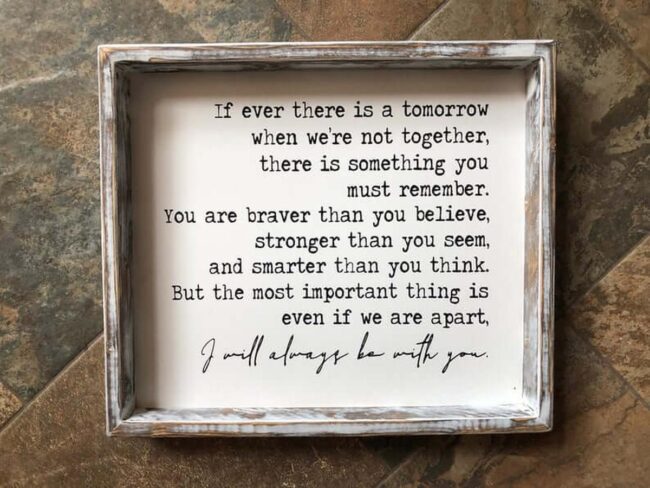 If ever there is a tomorrow
when we're not together,
there is something you
must remember.
You are braver than you believe,
stronger than you seem,
and smarter than you think.
But the most important thing is
even if we are apart,
I will always be with you.